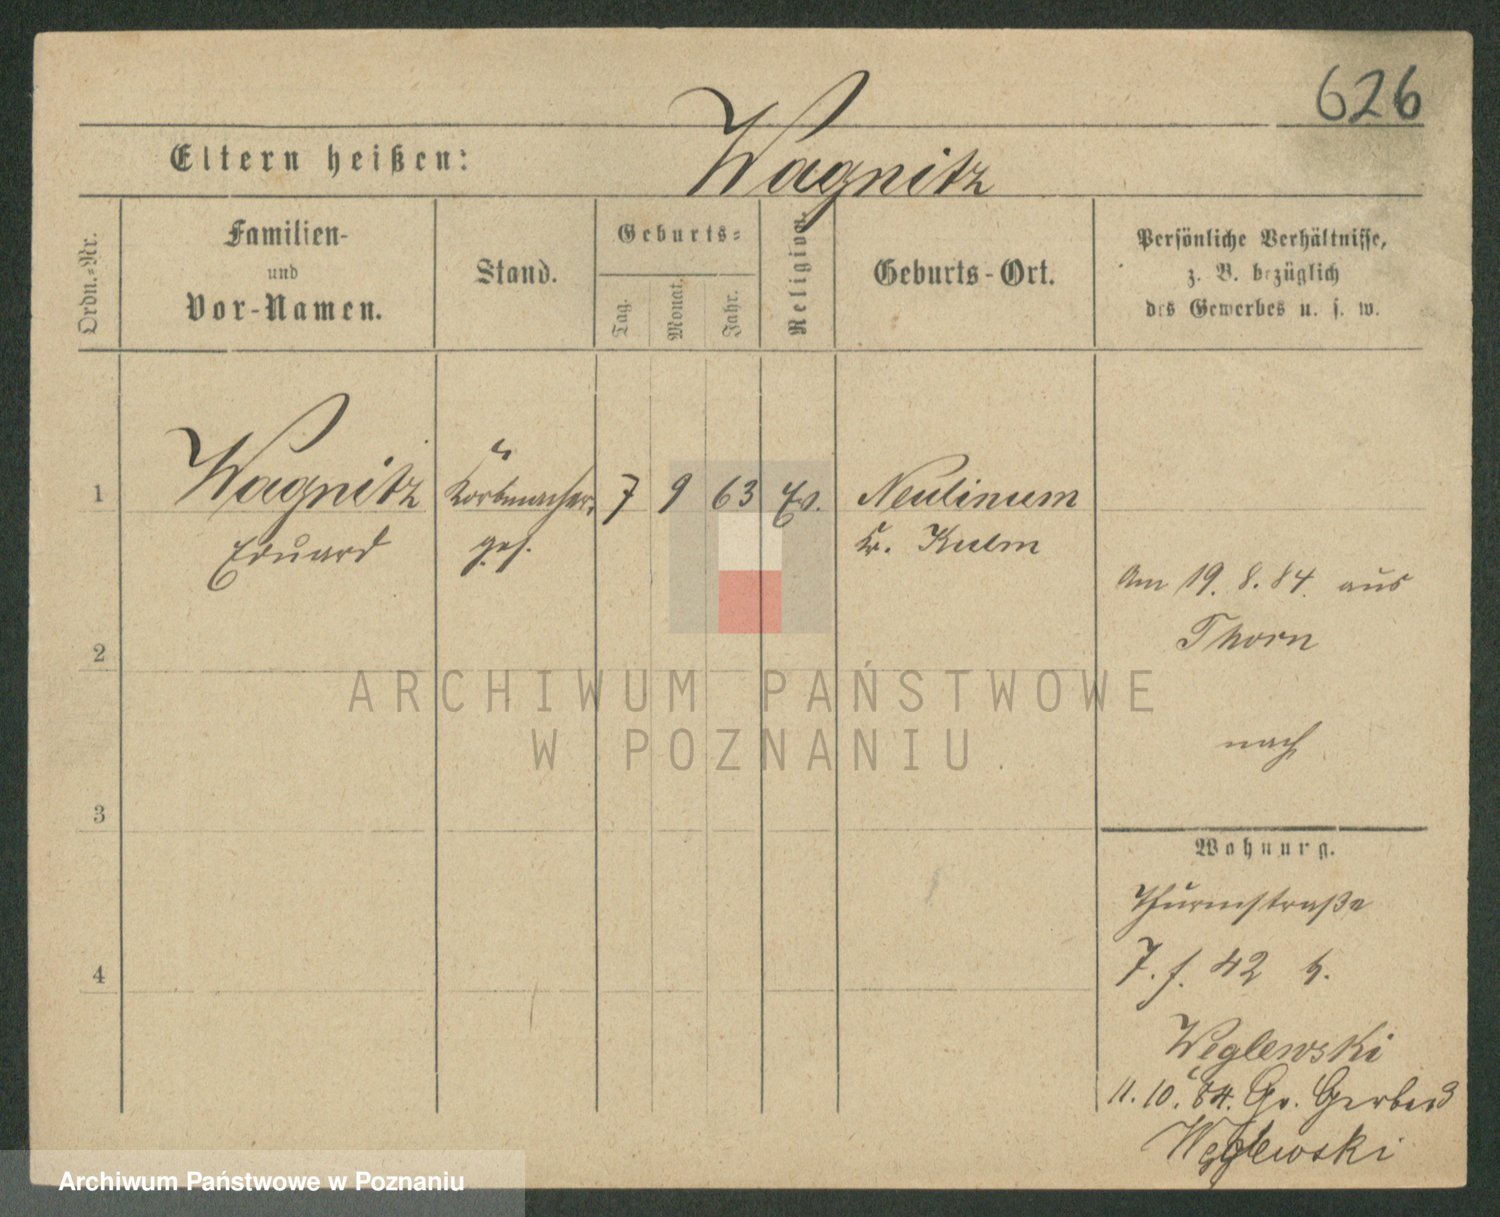 626
Eltern heißen: Wagnitz
Ordn.-Nr.
Familien-
und
Vor-Namen.
Stand.
Geburts-
Tag.
Monat.
Jahr.
Religion.
Geburts-Ort.
Persönliche Verhältnisse,
z. B. bezüglich
des Gewerbes u. s. w.
1 Wagnitz Korbmacher- 7 9 63 Ev. Neulinum
Eduard ges. Kr. Kulm
Am 19. 8. 84. aus
Thorn
2
ARCHIWUM PAŃSTWOWE
W POZNANIU
nach
3
Wohnung.
Thurmstraße
4
7. f. 42 b.
Węglewski
11. 10. 84. Gr. Gerber 3
Węglewski
Archiwum Państwowe w Poznaniu